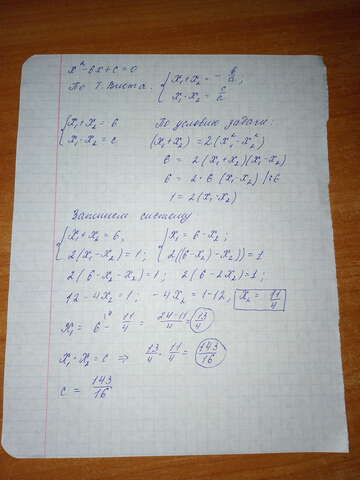 x² - 6x + c = 0
По Т. Виета: { x₁ + x₂ = - b/a ; x₁ · x₂ = c/a
{ x₁ + x₂ = 6 x₁ · x₂ = c По условию задачи:
(x₁ + x₂) = 2(x₁² - x₂²)
6 = 2(x₁ + x₂)(x₁ - x₂)
6 = 2 · 6 (x₁ - x₂) | :6
1 = 2(x₁ - x₂)
Запишем систему
{ x₁ + x₂ = 6, 2(x₁ - x₂) = 1; { x₁ = 6 - x₂; 2((6 - x₂) - x₂)) = 1
2(6 - x₂ - x₂) = 1; 2(6 - 2x₂) = 1;
12 - 4x₂ = 1; - 4x₂ = 1 - 12; x₂ = 11/4
x₁ = 6 - 11/4 = 24-11/4 = 13/4
x₁ · x₂ = c ⇒ 13/4 · 11/4 = 143/16
c = 143/16